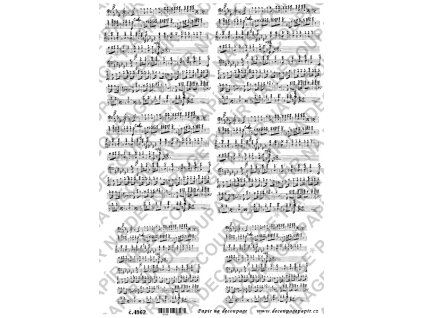 PAPÍR NA DECOUPAGE
č.4962 Papír na decoupage www.decoupagepapir.cz